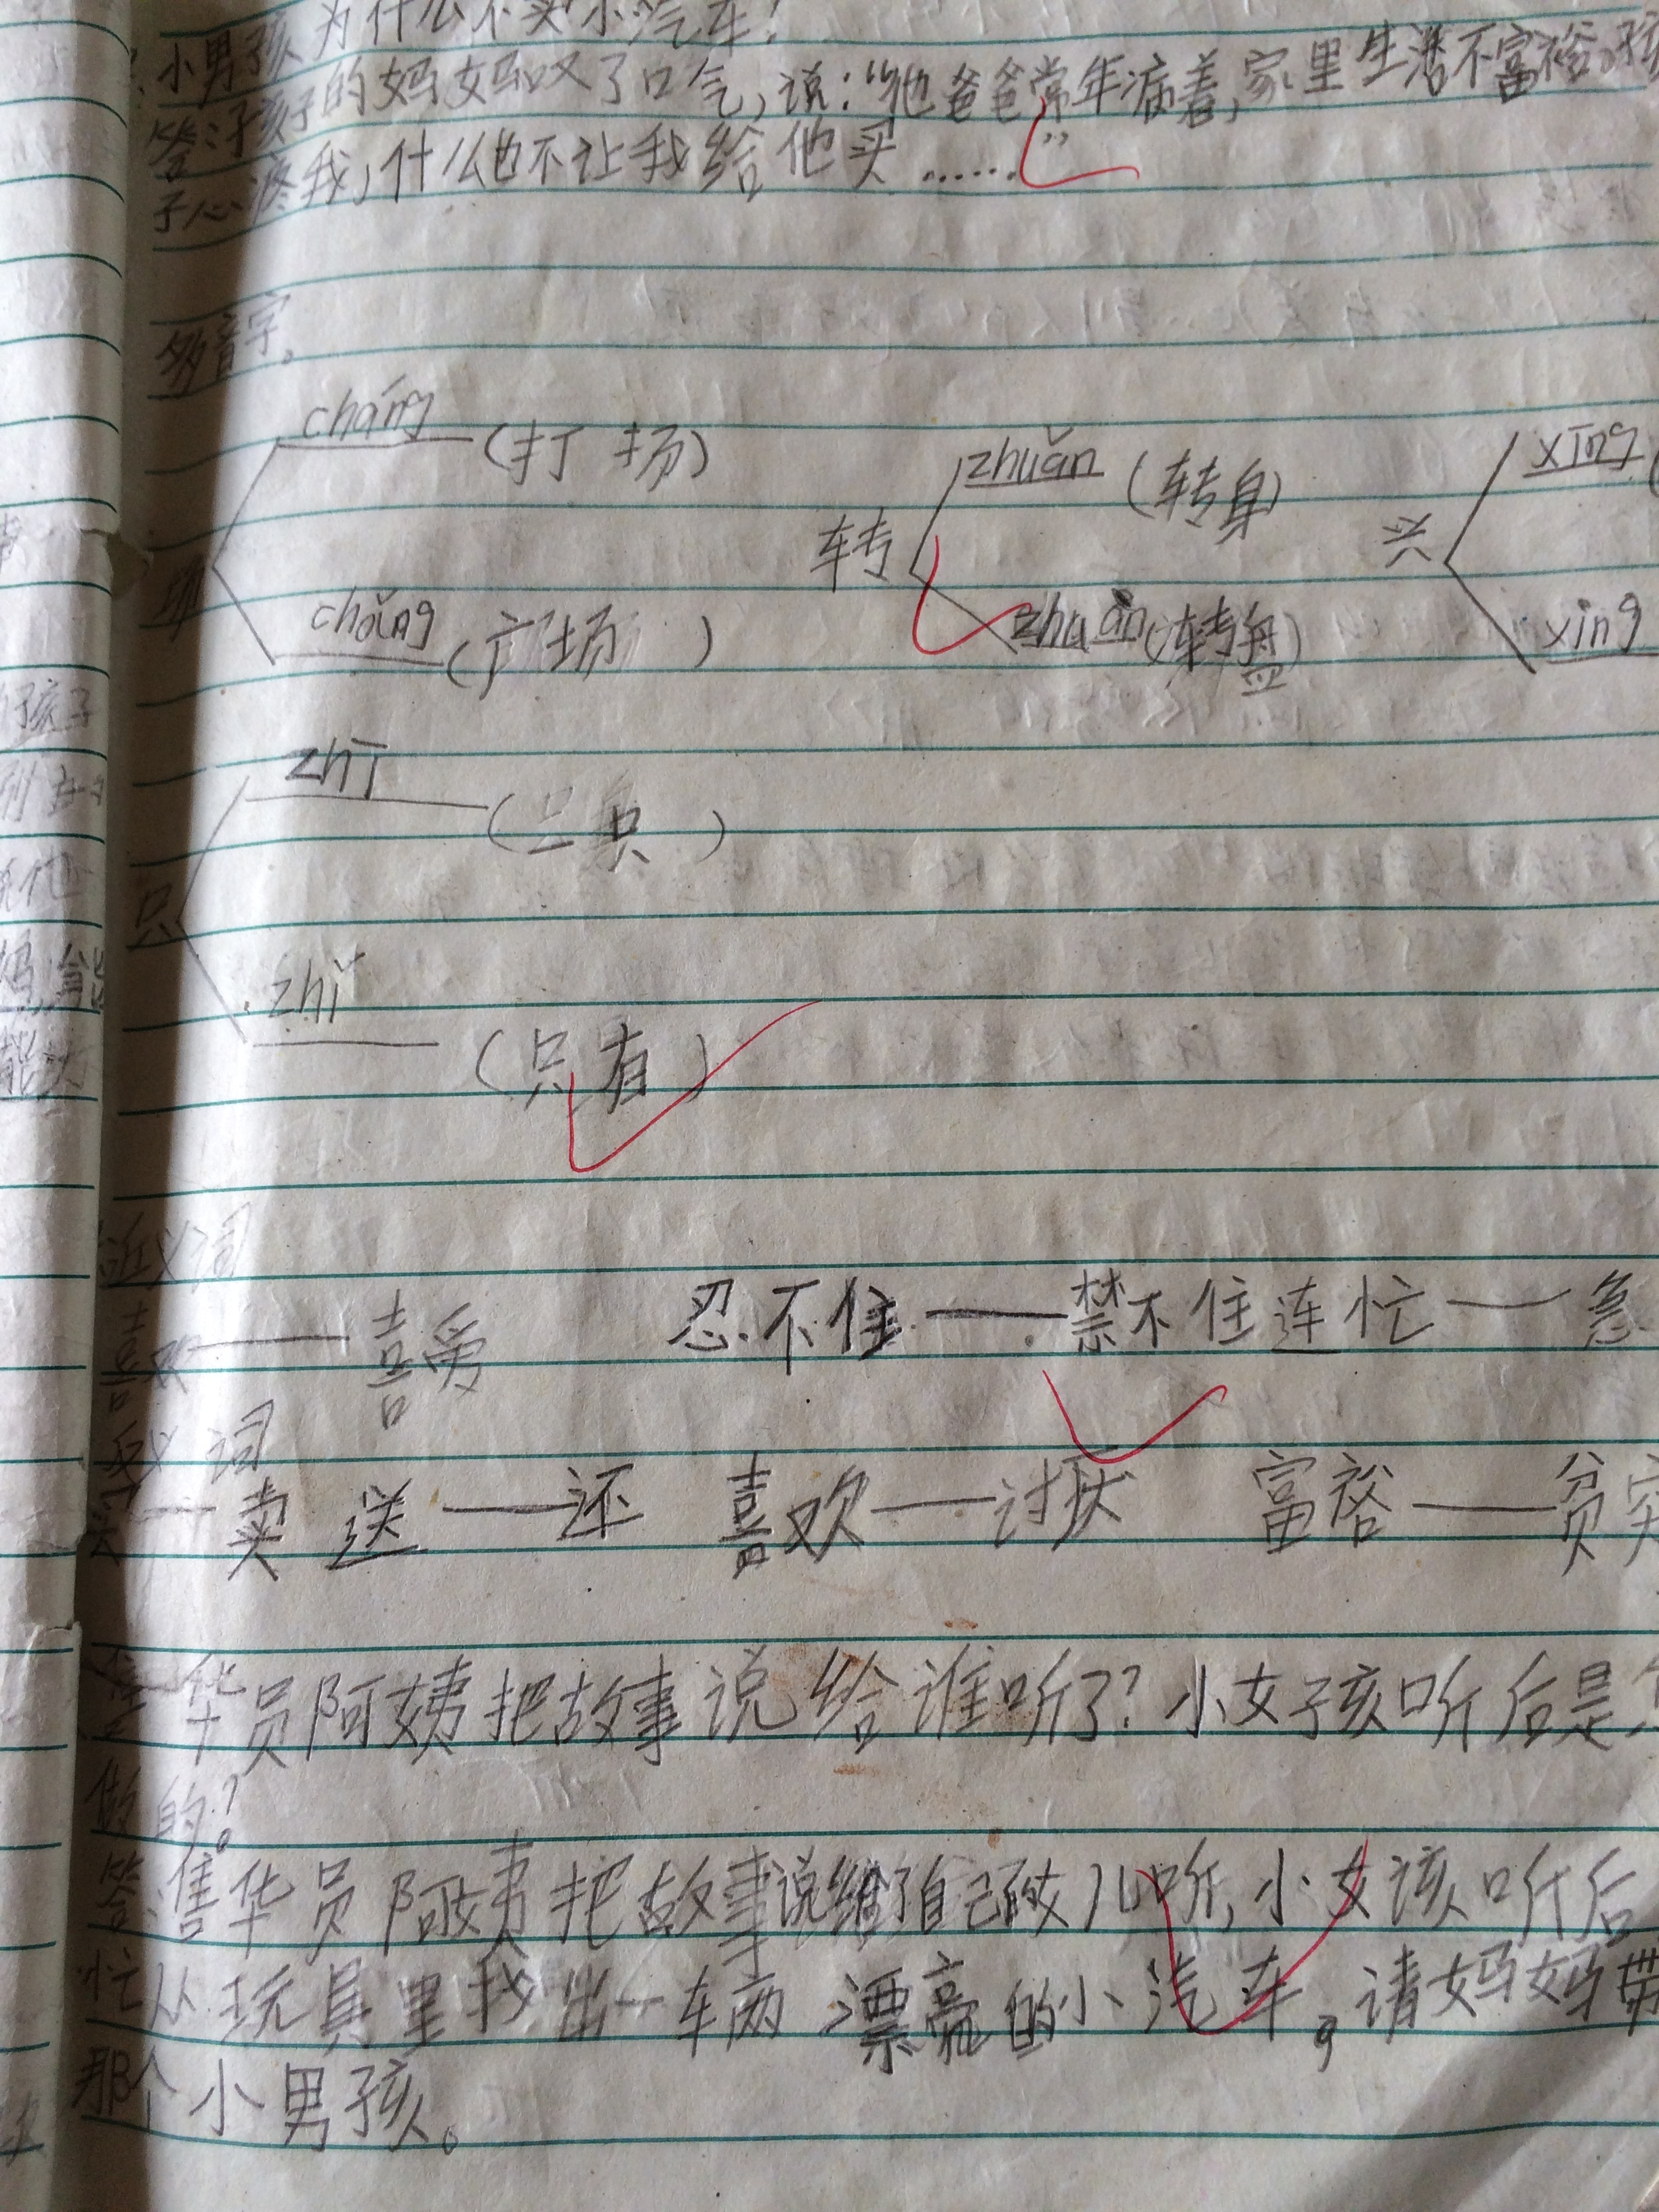 小男孩为什么不买小汽车?
答:孩子的妈妈叹了口气,说:“他爸爸常年病着,家里生活不富裕。孩
子心疼我,什么也不让我给他买……”
多音字。
cháng(打场) zhuǎn(转身) xīng(
场 转 兴
chǎng(广场) zhuàn(转盘) xìng
zhī(三只)
只
zhǐ(只有)
近义词
喜欢——喜爱 忍不住——禁不住 连忙——急
反义词
买——卖 送——还 喜欢——讨厌 富裕——贫穷
售华员阿姨把故事说给谁听了?小女孩听后是怎
做的?
答:售华员阿姨把故事说给了自己的女儿听,小女该听后
忙从玩具里找出一车两漂亮的小汽车,请妈妈带
那个小男孩。
孩子